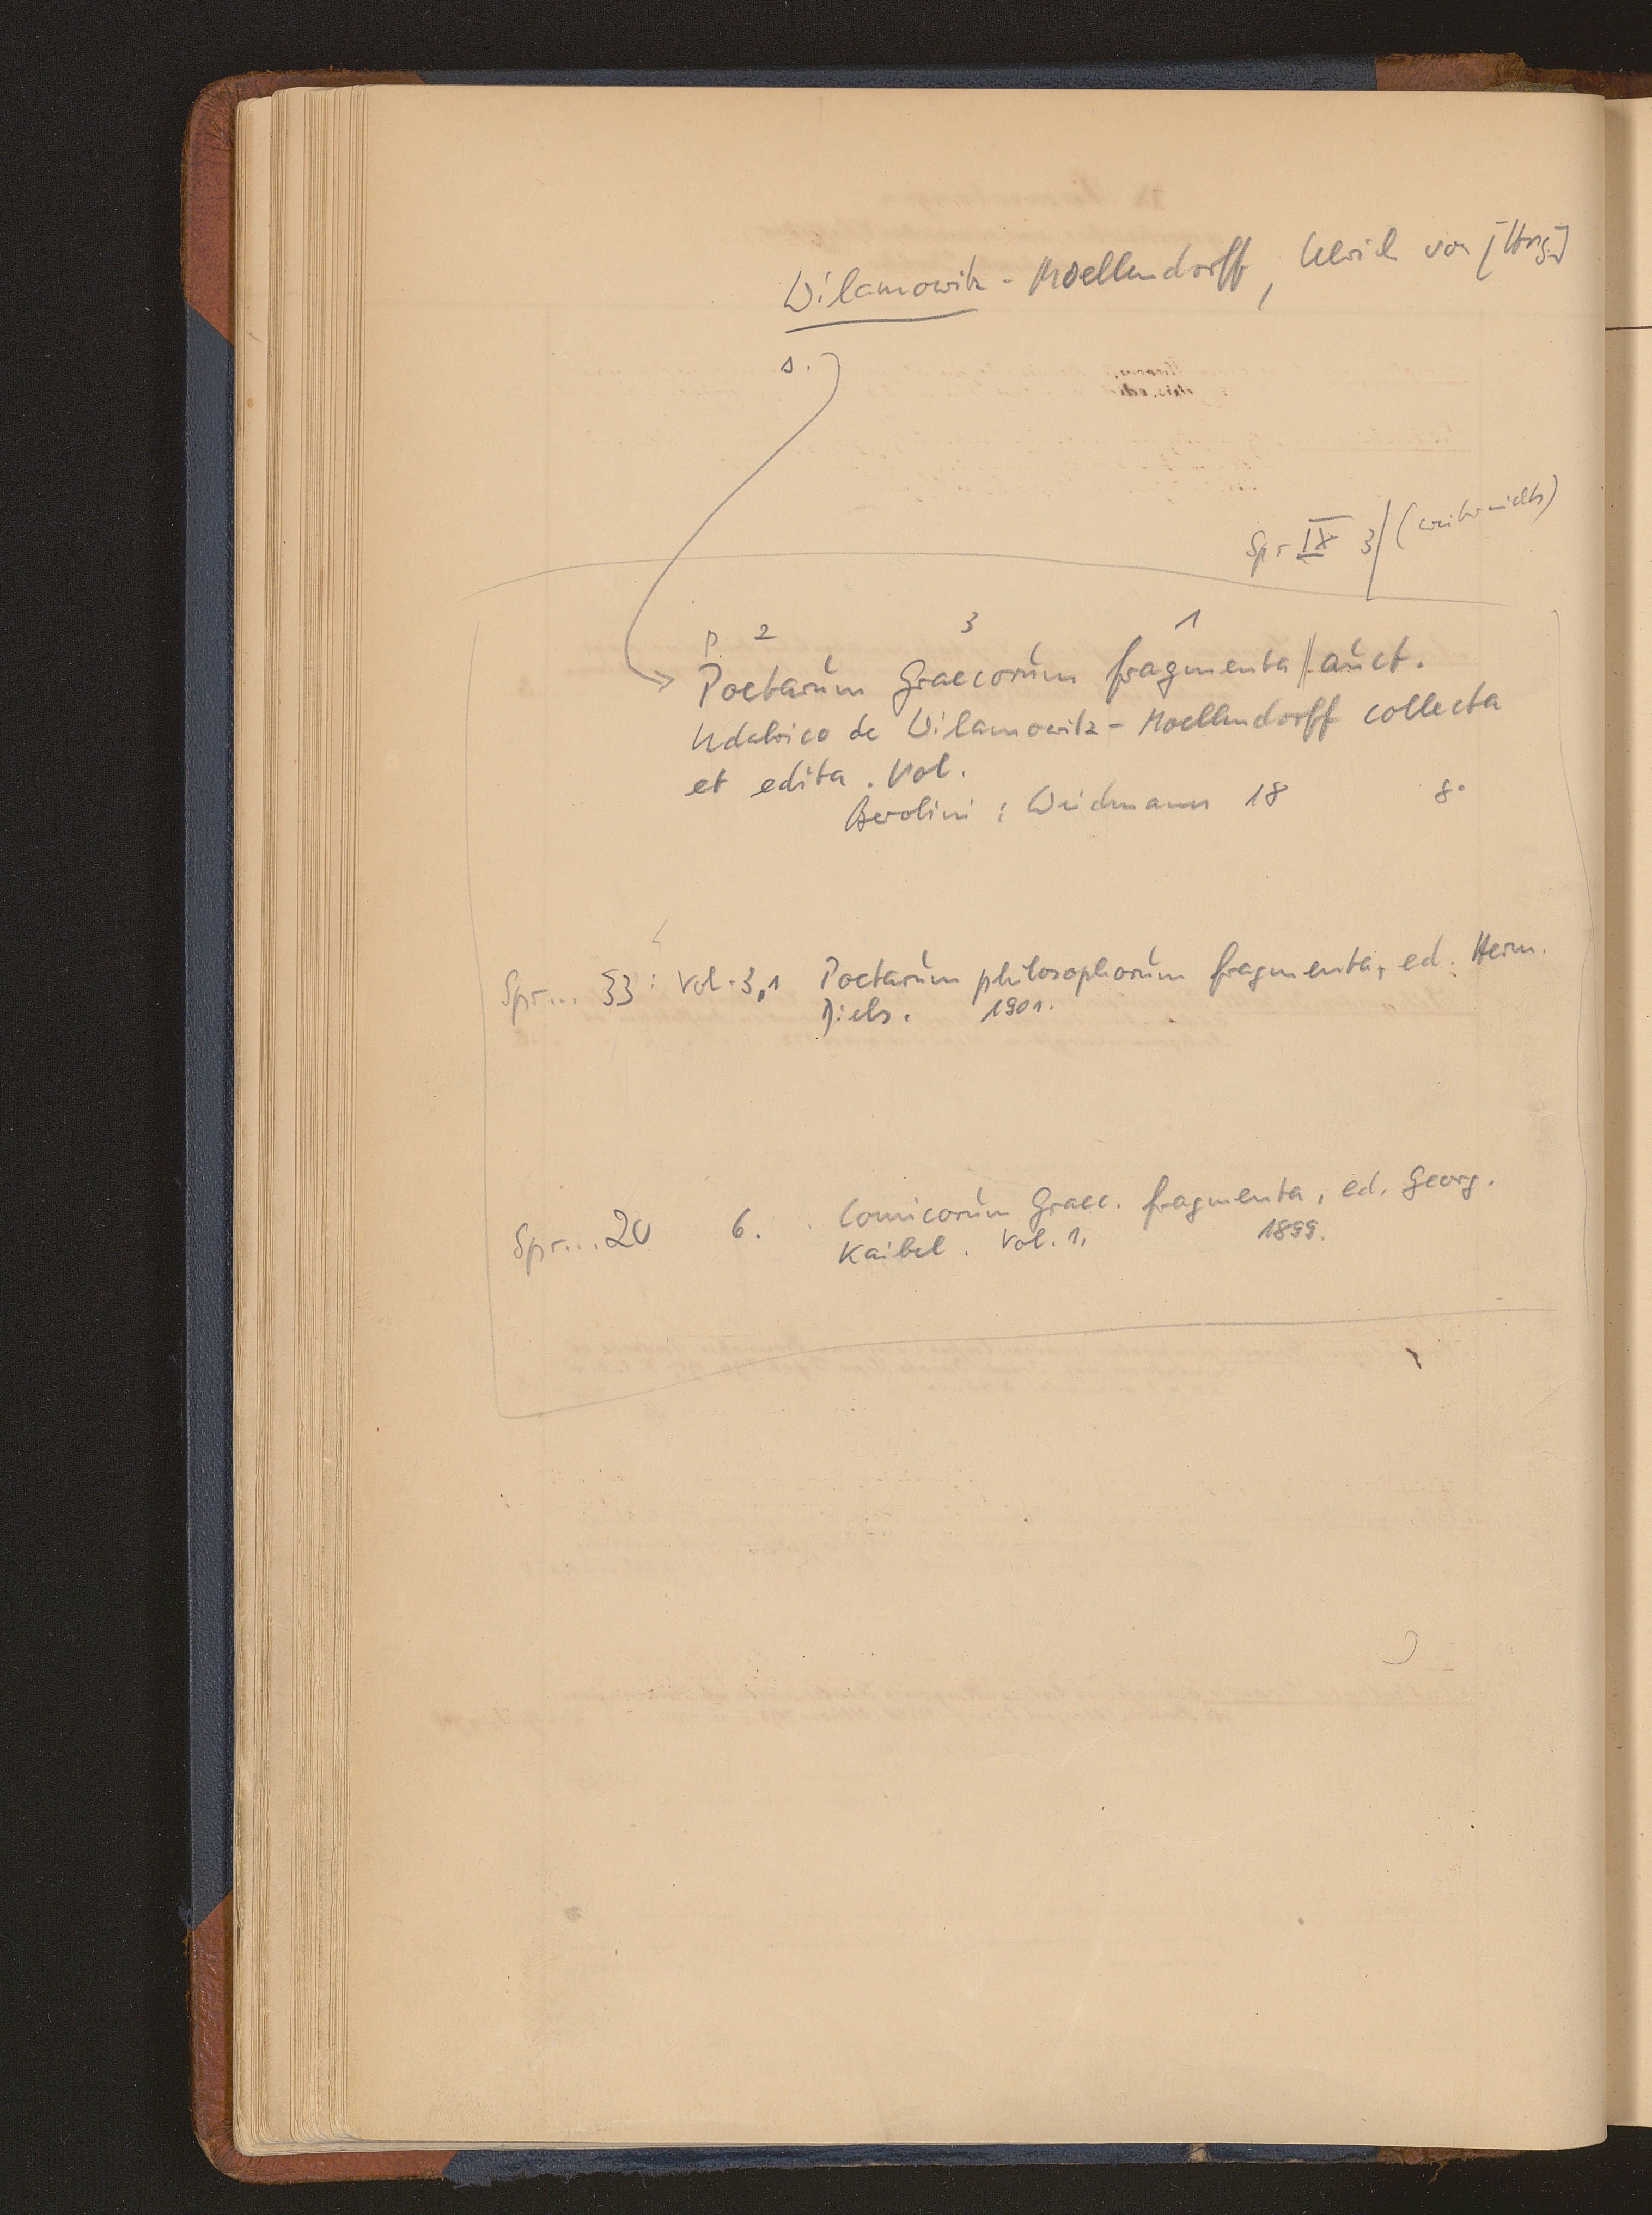 Wilamowitz-Moellendorff, Ulrich von [Hrsg.]
s.
Spr IX 3 (weiter nichts)
P 2 3 1
Poetarum Graecorum fragmenta auct.
Udalrico de Wilamowitz-Moellendorff collecta
et edita. Vol.
Berolini: Weidmann 18 8°
Spr... 33: Vol. 3,1 Poetarum philosophorum fragmenta, ed. Herm.
Diels. 1901.
Spr... 20 6. Comicorum Graec. fragmenta, ed. Georg.
Kaibel. Vol. 1. 1899.